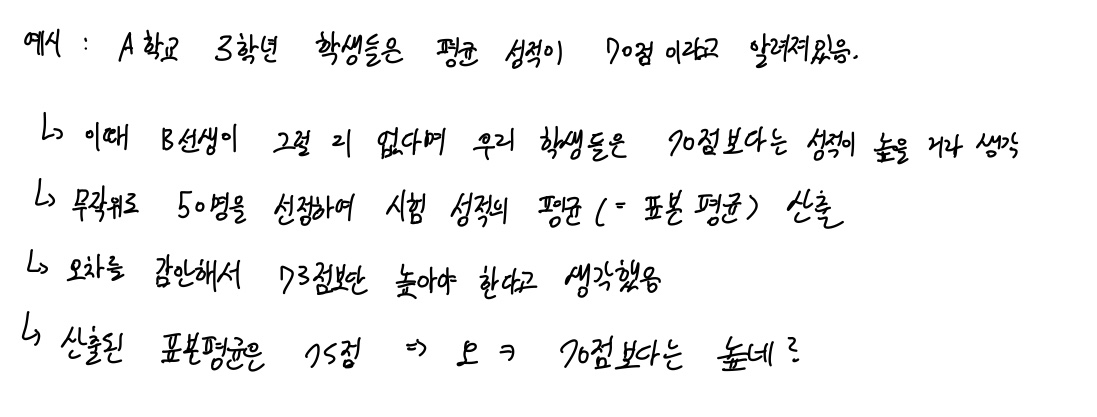 예시 : A학교 3학년 학생들은 평균 성적이 70점이라고 알려져있음.
↳ 이때 B선생이 그럴 리 없다며 우리 학생들은 70점보다는 성적이 높을 거라 생각
↳ 무작위로 50명을 선정하여 시험 성적의 평균(= 표본 평균) 산출
↳ 오차를 감안해서 73점보단 높아야 한다고 생각했음
↳ 산출된 표본평균은 75점 => 오 ㅋ 70점보다는 높네 ㄹ